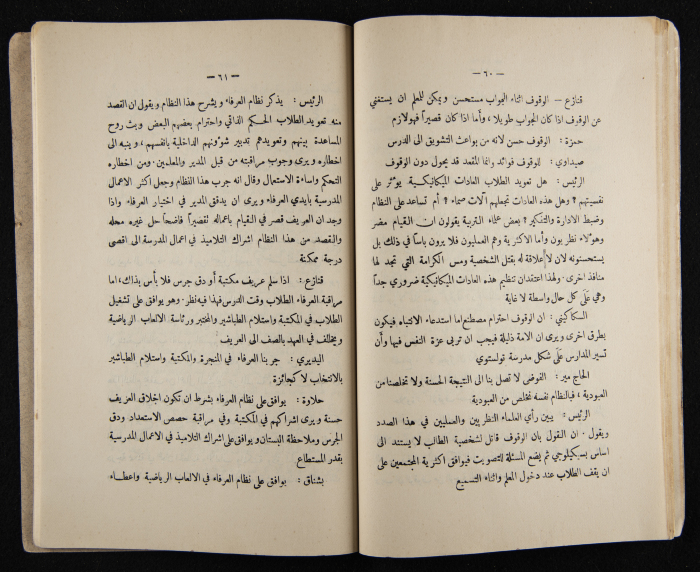 — ٦٠ —
قنازع — الوقوف اثناء الجواب مستحسن ويمكن للمعلم ان يستغني
عن الوقوف اذا كان الجواب طويلا، وأما اذا كان قصيراً فهو لازم
حمزة: الوقوف حسن لانه من بواعث التشويق الى الدرس
صيداوي: للوقوف فوائد وانما المقعد قد يحول دون الوقوف
الرئيس: هل تعويد الطلاب العادات الميكانيكية يؤثر على
نفسيتهم؟ وهل هذه العادات تجعلهم آلات صماء؟ أم تساعد على النظام
وضبط الادارة والتفكير؟ بعض علماء التربية يقولون ان القيام مضر
وهؤلاء نظريون وأما الاكثرية وهم العمليون فلا يرون باساً في ذلك بل
يستحسنونه لان لا علاقة له بقتل الشخصية ومس الكرامة التي تجد لها
منافذ اخرى. ولهذا اعتقد ان تنظيم هذه العادات الميكانيكية ضروري جداً
وهي على كل حال واسطة لا غاية
السكاكيني: ان الوقوف احترام مصطنع اما استدعاء الانتباه فيكون
بطرق اخرى ويرى ان الامة ذليلة فيجب ان تربى عزة النفس فيها وأن
تسير المدارس على شكل مدرسة تولستوي
الحاج مير: الفوضى لا تصل بنا الى النتيجة الحسنة ولا تخلصنا من
العبودية، فبالنظام نفسه نخلص من العبودية
الرئيس: يبين رأي العلماء النظريين والعمليين في هذا الصدد
ويقول. ان القول بان الوقوف قاتل لشخصية الطالب لا يستند الى
اساس بسيكيلوجي ثم يضع المسئلة للتصويت فيوافق اكثرية المجتمعين على
ان يقف الطلاب عند دخول المعلم واثناء التسميع
— ٦١ —
الرئيس: يذكر نظام العرفاء ويشرح هذا النظام ويقول ان القصد
منه تعويد الطلاب الحكم الذاتي واحترام بعضهم البعض وبث روح
المساعدة بينهم وتعويدهم تدبير شؤونهم الداخلية بانفسهم، وينبه الى
اخطاره ويرى وجوب مراقبته من قبل المدير والمعلمين. ومن اخطاره
التحكم واساءة الاستعمال وقال انه جرب هذا النظام وجعل اكثر الاعمال
المدرسية بايدي العرفاء ويرى ان يدقق المدير في اختيار العرفاء واذا
وجد ان العريف قصر في القيام باعماله تقصيراً فاضحاً حل غيره محله
والقصد من هذا النظام اشراك التلاميذ في اعمال المدرسة الى اقصى
درجة ممكنة
قنازع: اذا سلم عريف مكتبة أو دق جرس فلا بأس بذلك، اما
مراقبة العرفاء الطلاب وقت الدرس فهذا فيه نظر. وهو يوافق على تشغيل
الطلاب في المكتبة واستلام الطباشير والمختبر ورئاسة الالعاب الرياضية
ويخالف في العهد بالصف الى العريف
البديري: جربنا العرفاء في المنجرة والمكتبة واستلام الطباشير
بالانتخاب لا كجائزة
حلاوة: يوافق على نظام العرفاء بشرط ان تكون اخلاق العريف
حسنة ويرى اشراكهم في المكتبة وفي مراقبة حصص الاستعداد ودق
الجرس وملاحظة البستان ويوافق على اشراك التلاميذ في الاعمال المدرسية
بقدر المستطاع
بشناق: يوافق على نظام العرفاء في الالعاب الرياضية واعطاء